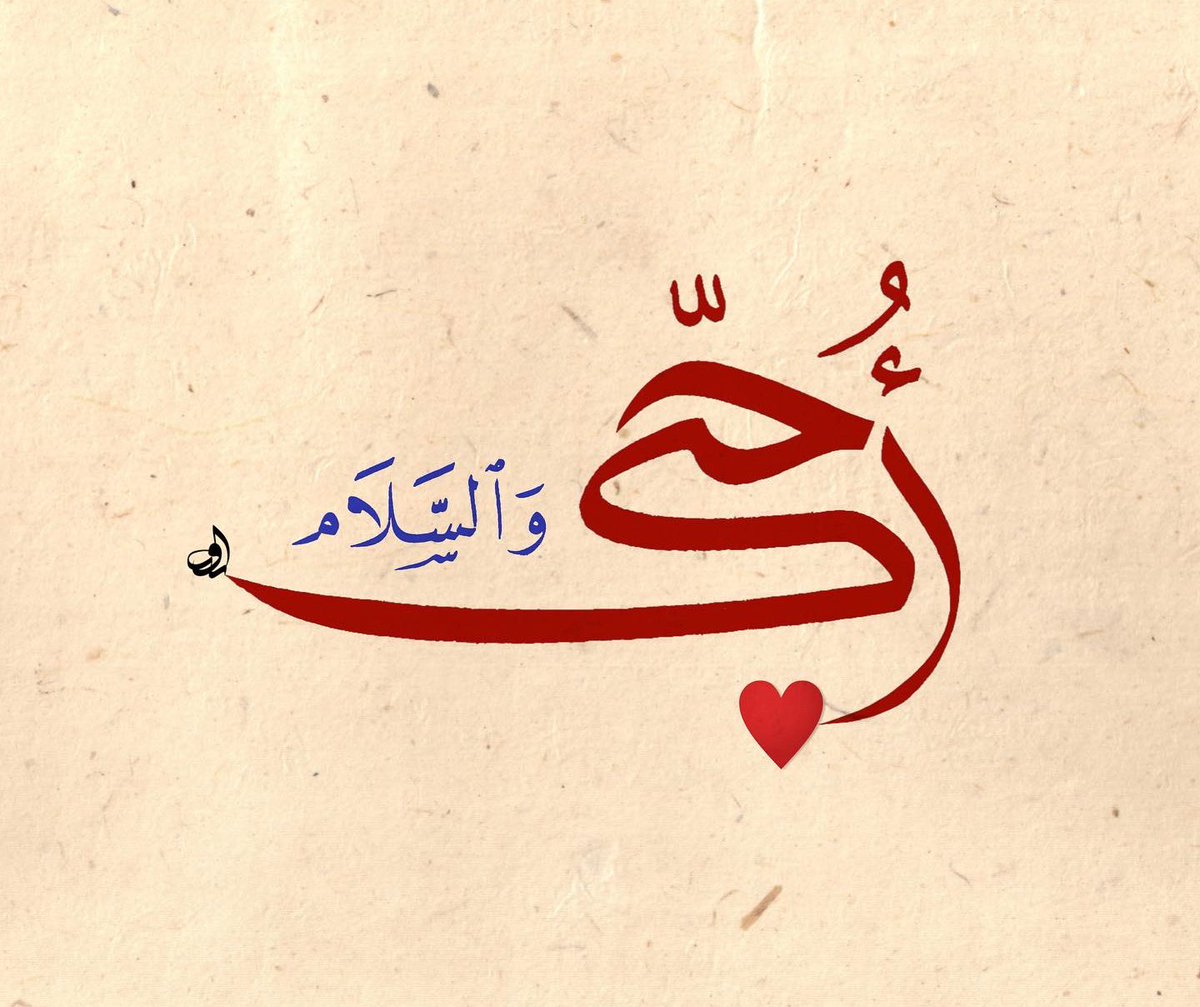 أُحبّك
وَٱلسَّلَام